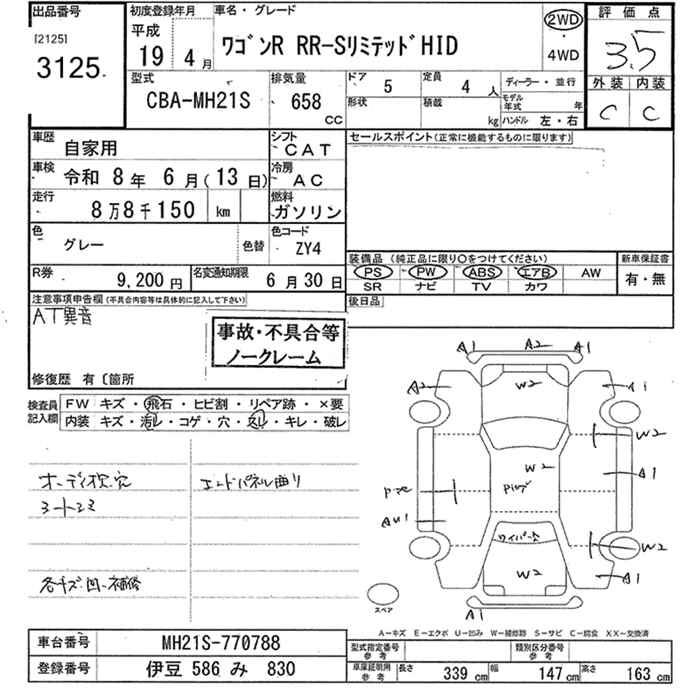 出品番号
[2125]
3125.
初度登録年月
平成
19 4月
車名・グレード
ワゴンR RR-SリミテッドHID
2WD
・
4WD
評価点
3.5
外装 内装
C C
型式
CBA-MH21S
排気量
658
cc
ドア
5
定員
4 人
形状
積載
kg
ディーラー・並行
モデル年式 年
ハンドル 左・右
車歴
自家用
シフト
CAT
車検
令和 8年 6月(13日)
冷房
AC
走行
8万8千150 km
燃料
ガソリン
色
グレー
色替
色コード
ZY4
R券
9,200円
名変通知期限
6月30日
セールスポイント(正常に機能するものに限ります)
装備品(純正品に限り○をつけてください)
新車保証書
PS PW ABS エアB AW
SR ナビ TV カワ
有・無
後日品
注意事項申告欄(不具合内容等は具体的に記入して下さい)
AT異音
事故・不具合等
ノークレーム
修復歴 有〔箇所
検査員
記入欄
FW キズ・飛石・ヒビ割・リペア跡・×要
内装 キズ・汚レ・コゲ・穴・スレ・キレ・破レ
エンドパネル曲り
各キズ凹補修
A1 A2 A1
A2 W2 A1
W2
W2 A1
AU1
ワイパー欠
W2
W2
A1
A1
スペア
A-キズ E-エクボ U-凹み W-補修跡 S-サビ C-腐食 XX-交換済
車台番号
MH21S-770788
登録番号
伊豆 586 み 830
型式指定番号
参考
類別区分番号
参考
車庫証明用
参考
長さ 339 cm 幅 147 cm 高さ 163 cm